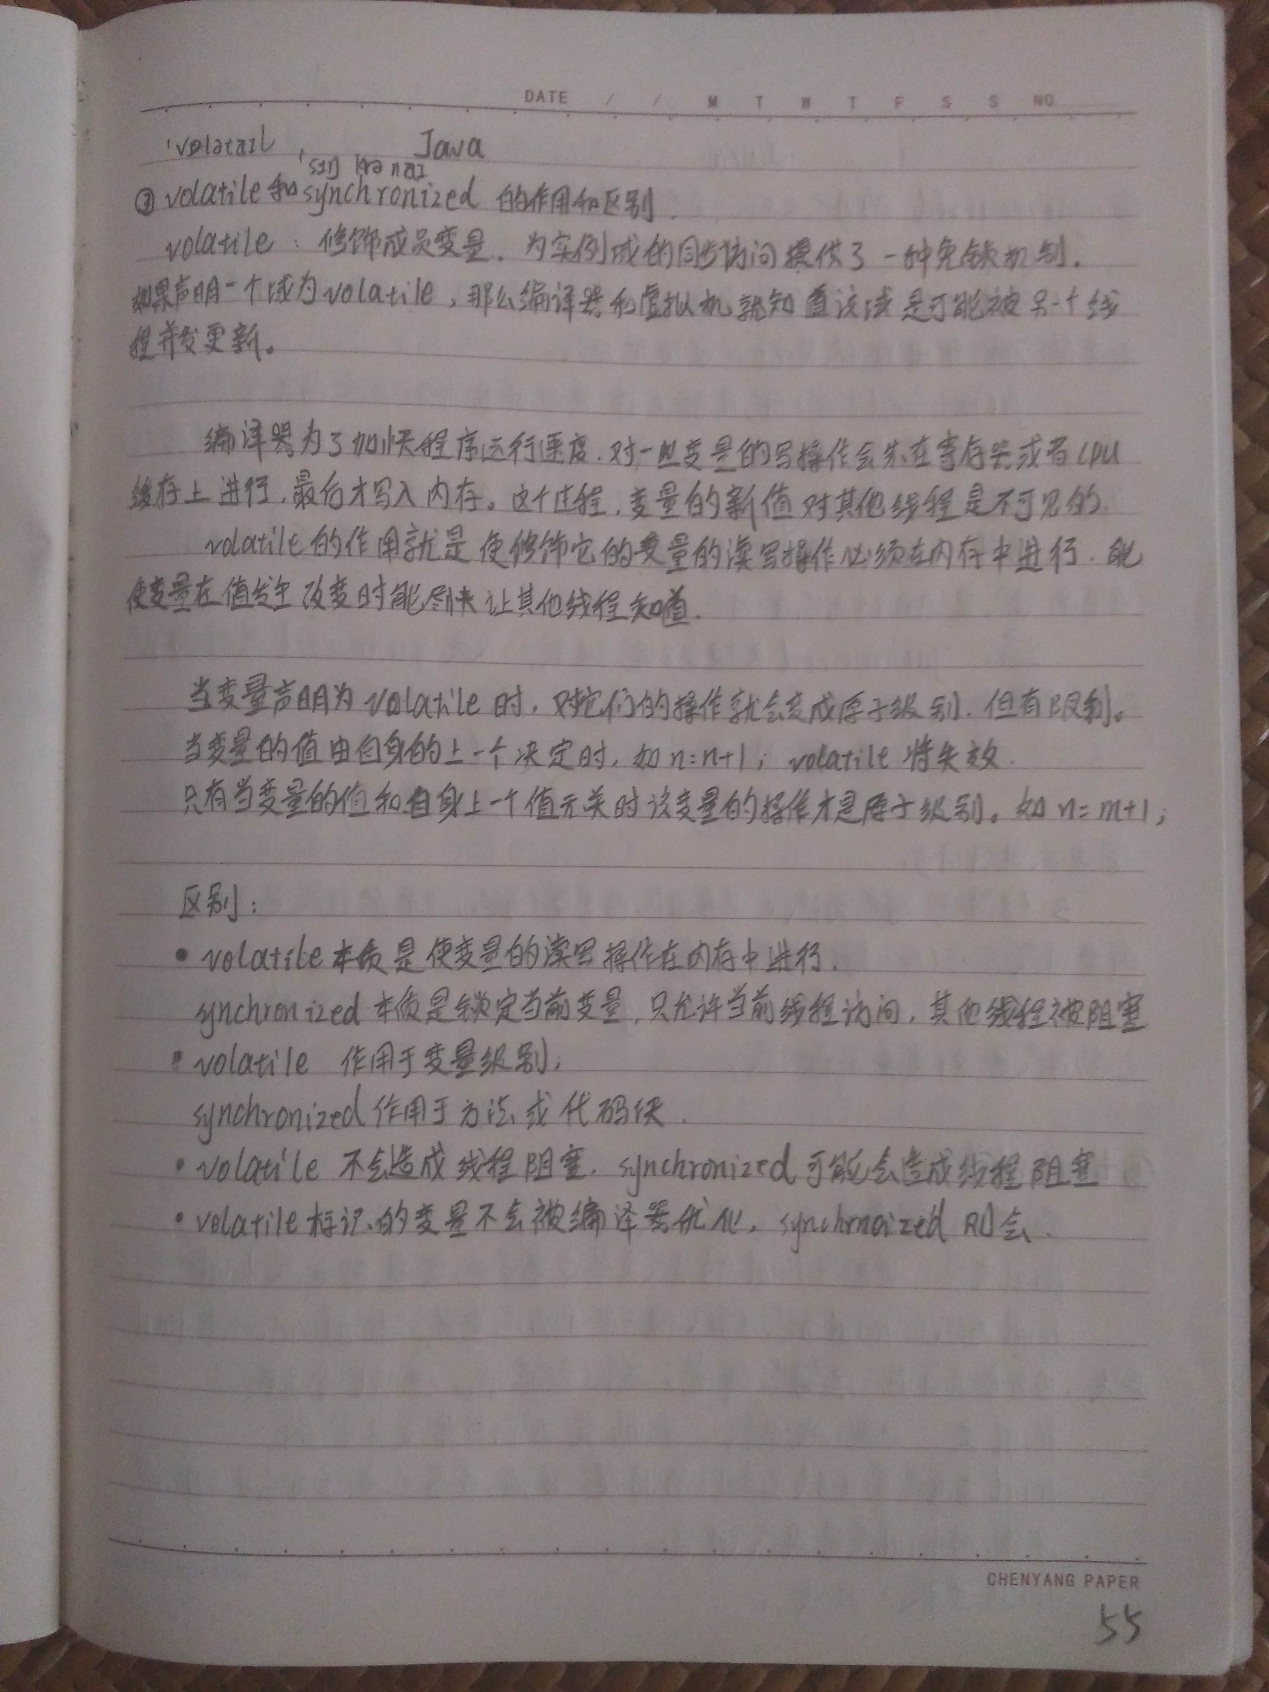 DATE / / M T W T F S S NO
'volatail Java
'sɪŋkrənaɪ
③ volatile和synchronized 的作用和区别.
volatile: 修饰成员变量, 为实例域的同步访问提供了一种免锁机制.
如果声明一个域为volatile, 那么编译器和虚拟机就知道该域是可能被另一个线
程并发更新。
编译器为了加快程序运行速度, 对一些变量的写操作会先在寄存器或者CPU
缓存上进行, 最后才写入内存。这个过程, 变量的新值对其他线程是不可见的.
volatile的作用就是使修饰它的变量的读写操作必须在内存中进行. 能
使变量在值发生改变时能尽快让其他线程知道.
当变量声明为volatile时, 对它们的操作就会变成原子级别. 但有限制。
当变量的值由自身的上一个决定时, 如n=n+1; volatile将失效.
只有当变量的值和自身上一个值无关时该变量的操作才是原子级别。如n=m+1;
区别:
• volatile本质是使变量的读写操作在内存中进行.
synchronized本质是锁定当前变量, 只允许当前线程访问, 其他线程被阻塞
• volatile 作用于变量级别;
synchronized作用于方法或代码块.
• volatile 不会造成线程阻塞. synchronized可能会造成线程阻塞
• volatile标识的变量不会被编译器优化, synchrnoized则会.
CHENYANG PAPER
55